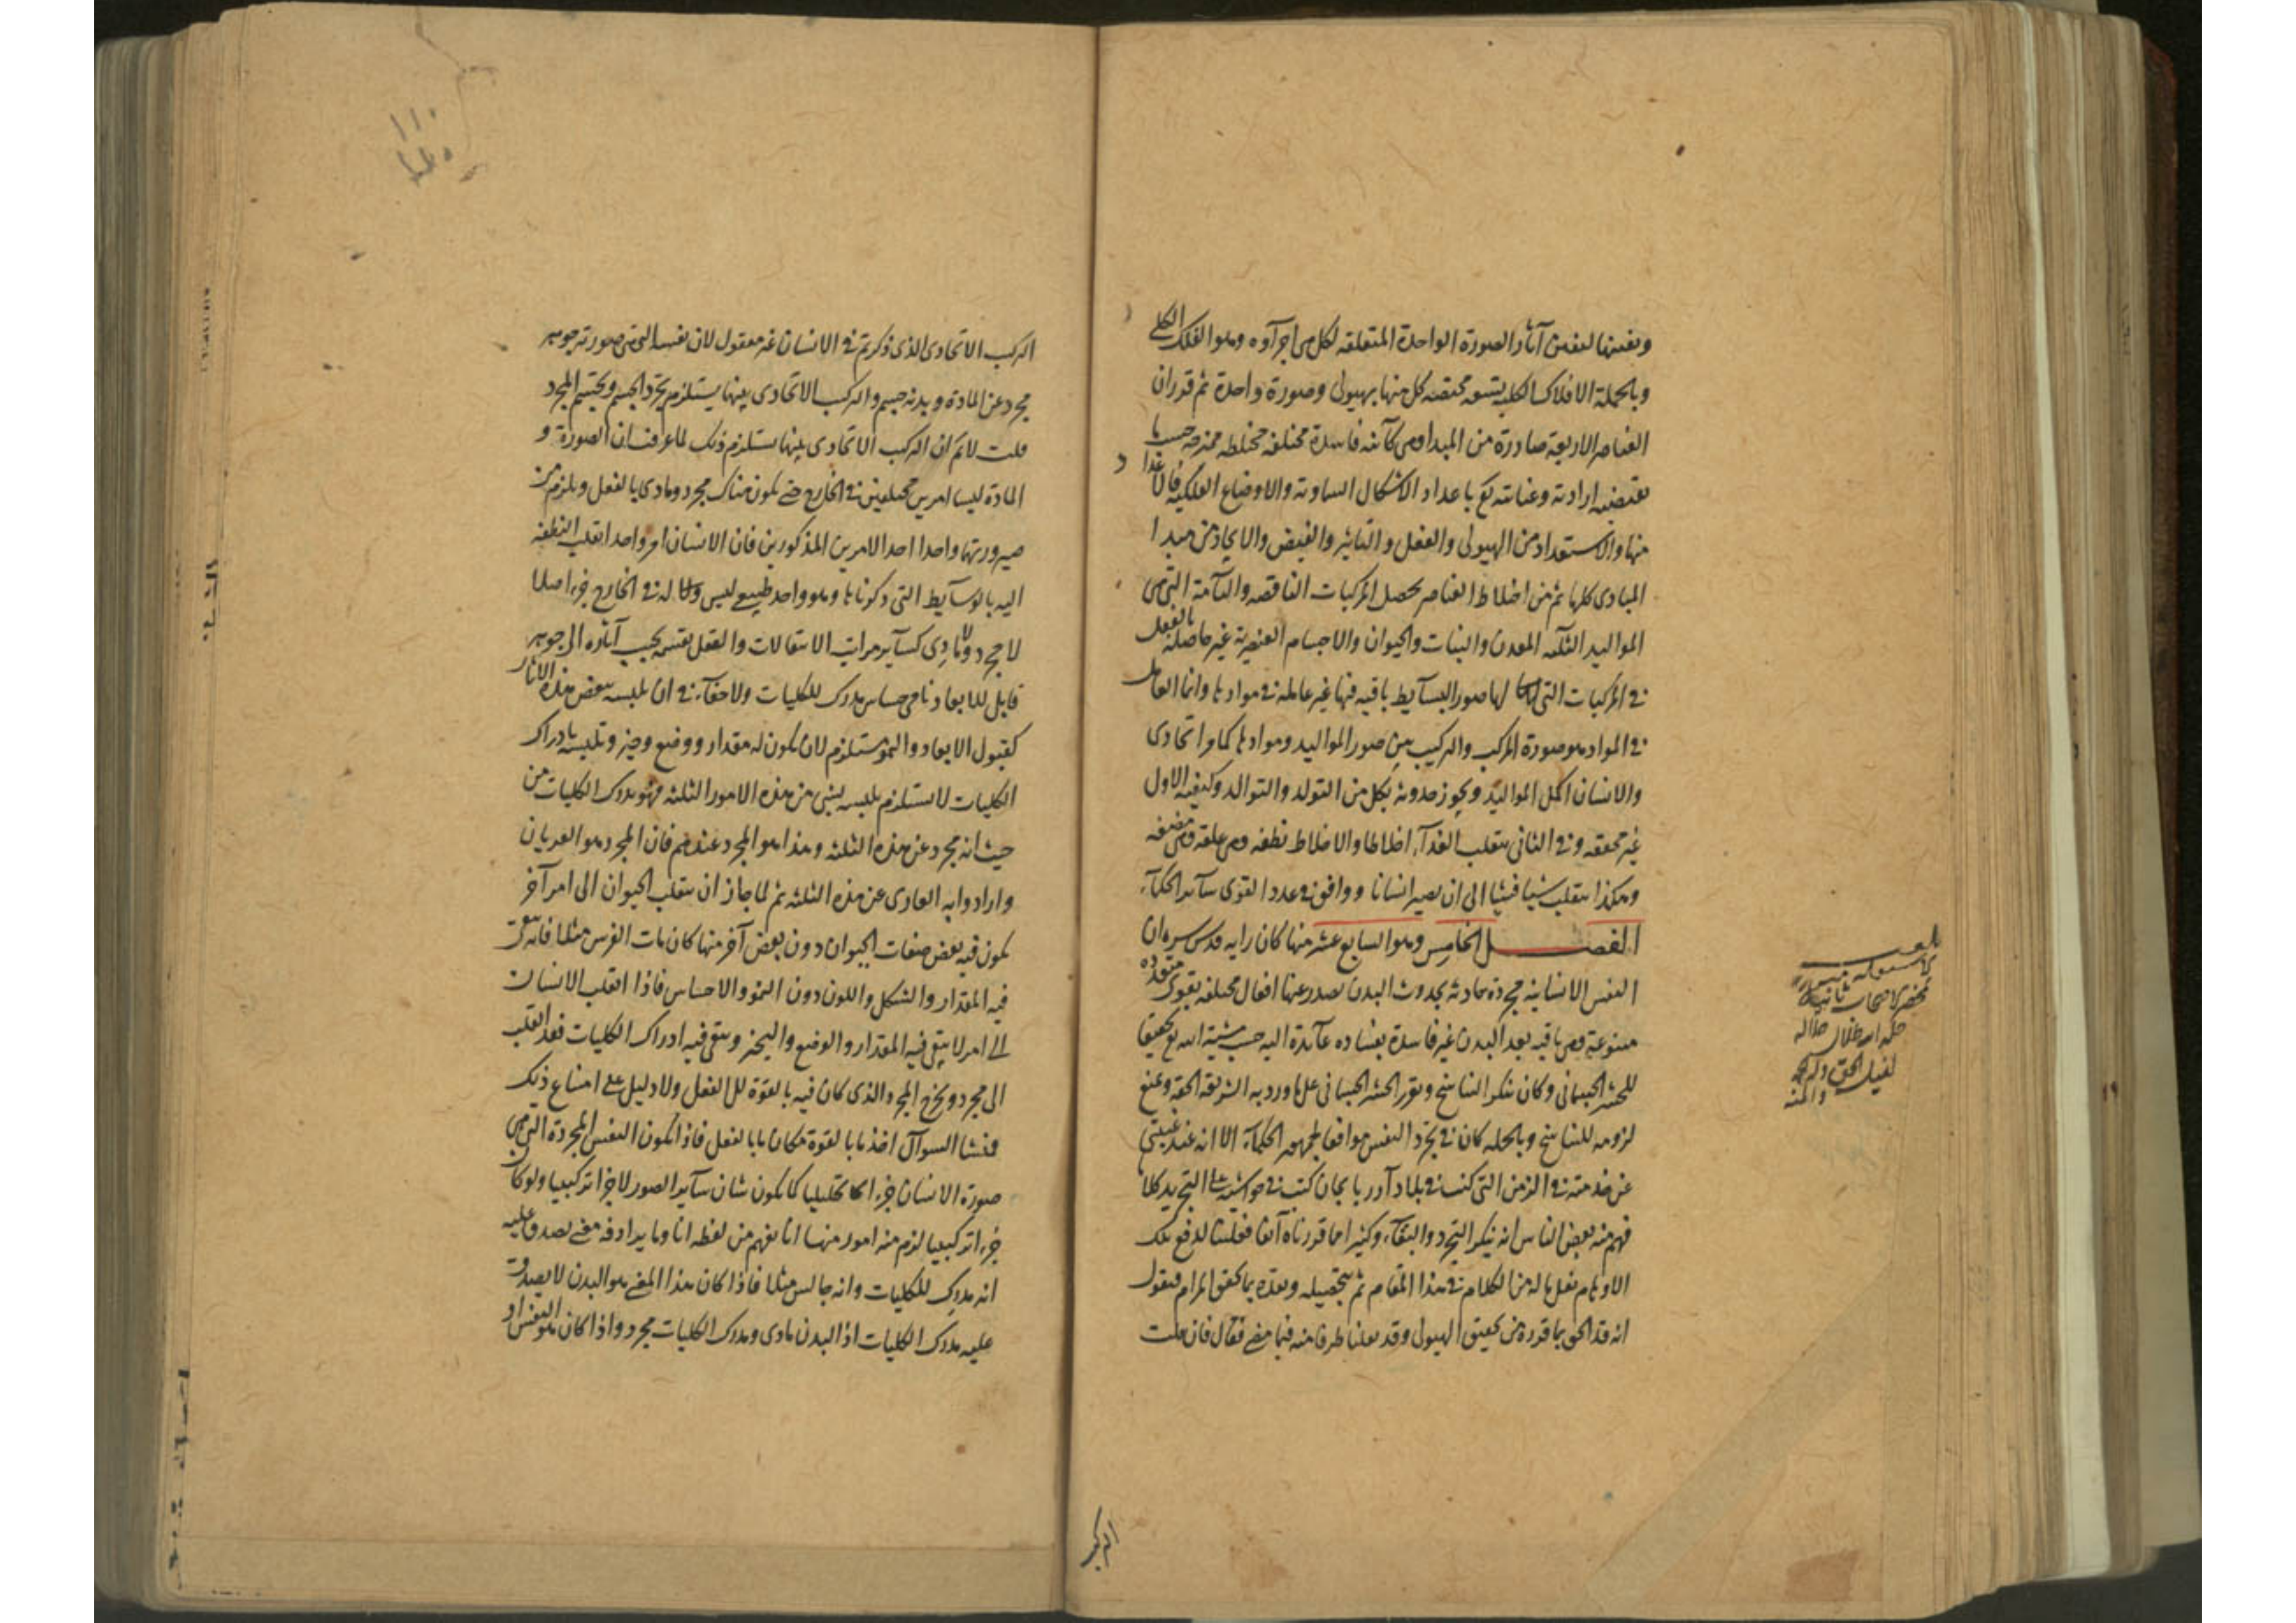 وبعينها لبعض آثار الصورة الواحدة المتعلقه لكل من اجزآوه وهو الفلك الكلي
وبالجملة الافلاك الكلية تسعه مختصه كل منها بهيولى وصورة واحدة ثم قرر ان
العناصر الاربعة صادرة من المبدا وهى كآئنه فاسدة مختلفه مختلطه ممتزجه حسب ما
يقتضيه ارادته وعنايته تع باعداد الاشكال السماوية والاوضاع الفلكيه فالاعداد
منها والاستعداد من الهيولى والفعل والتاثير والفيض والايجاد من مبدا
المبادى كلها ثم من اختلاط العناصر يحصل المركبات الناقصه والتآمة التى هى
المواليد الثلثه المعدن والنبات والحيوان والاجسام العنصرية غير حاصلة بالفعل
فى المركبات التى لها صور البسآيط باقيه فيها غير عاملة فى موادها وانما العامل
فى المواد هو صورة المركب والتركيب بين صور المواليد وموادها كما مر اتحادى
والانسان اكمل المواليد ويجوز حدوثه بكل من التولد والتوالد وكيفيه الاول
غير محققه وفى الثانى ينقلب الغذآء اخلاطا والاخلاط نطفه وهى علقه وهى مضغه
وهكذا ينقلب شيا فشيا الى ان يصير انسانا ووافق فى عدد القوى سآير الحكمآء
الفصل الخامس وهو السابع عشر منها كان رايه قدس سره ان
النفس الانسانية مجردة حادثه بحدوث البدن يصدر عنها افعال مختلفه بقوى متعدده
متنوعة وهى باقيه بعد البدن غير فاسدة بفساده عآئدة اليه حسب مشية الله تع تحقيقا
للحشر الجسمانى وكان ينكر التناسخ ويقرر الحشر الجسمانى على ما ورد به الشريعة الحقه ويمنع
لزومه للتناسخ وبالجمله كان فى تجرد النفس موافقا لجمهور الحكمآء الا انه عند غيبتى
عن خدمته فى الزمن التى كنت فى بلاد آذربايجان كتب فى حواشيه على التجريد كلاما
فهم منه بعض الناس انه ينكر التجرد والبقآء وكثيرا مما قررناه آنفا فعلينا لدفع تلك
الاوهام نقل ماله من الكلام فى هذا المقام ثم تحصيله ونقده بما يحقق المرام فنقول
انه قد الحق بما قرره من تحقيق الهيولى وقد نقلنا طرفا منه فيما مضى فقال فان قلت
التركيب
التركيب الاتحادى الذى ذكرتم فى الانسان غير معقول لان نفسه التى هى صورته جوهر
مجرد عن المادة وبدنه جسم والتركيب الاتحادى بينها يستلزم تجرد الجسم وتجسم المجرد
قلت لانم ان التركيب الاتحادى بينها يستلزم ذلك لما عرفت ان الصورة و
المادة ليسا امرين مختلفين فى الخارج حتى يكون هناك مجرد ومادى بالفعل ويلزم من
صيرورتهما واحدا احد الامرين المذكورين فان الانسان امر واحد انقلب النطفه
اليه بالوسآيط التى ذكرناها وهو واحد طبيعى ليس له فى الخارج جزء اصلا
لا مجرد ولا مادى كسآير مراتب الانتقالات والعقل يقسمه بحسب آثاره الى جوهر
قابل للابعاد نامى حساس مدرك للكليات ولا خفآء فى ان تلبسه ببعض هذه الاثار
كقبول الابعاد والنمو مستلزم لان يكون له مقدار ووضع وحيز وتلبسه بادراك
الكليات لا يستلزم تلبسه بشئ من هذه الامور الثلثه فهو مدرك الكليات من
حيث انه مجرد عن هذه الثلثه وهذا هو المجرد عندهم فان المجرد هو العريان
وارادوا به العارى عن هذه الثلثه ثم لما جاز ان ينقلب الحيوان الى امر آخر
يكون فيه بعض صفات الحيوان دون بعض آخر منها كان مات الفرس مثلا فانه يبقى
فيه المقدار والشكل واللون دون النمو والاحساس فاذا انقلب الانسان
الى امر لا يبقى فيه المقدار والوضع والتحيز ويبقى فيه ادراك الكليات فقد انقلب
الى مجرد ويخرج المجرد الذى كان فيه بالقوة الى الفعل ولا دليل على امتناع ذلك
فمنشا السوآل اخذ ما بالقوة مكان ما بالفعل فاذا يكون النفس المجردة التى هى
صورة الانسان جزءا تحليليا كما يكون شان سآير الصور لا جزءا تركيبيا ولو كان
جزءا تركيبيا لزم منه امور منها انا نفهم من لفظه انا وما يرادفه معنى يصدق عليه
انه مدرك للكليات وانه جالس مثلا فاذا كان هذا المعنى هو البدن لا يصدق
عليه مدرك الكليات اذ البدن مادى ومدرك الكليات مجرد واذا كان هو النفس او